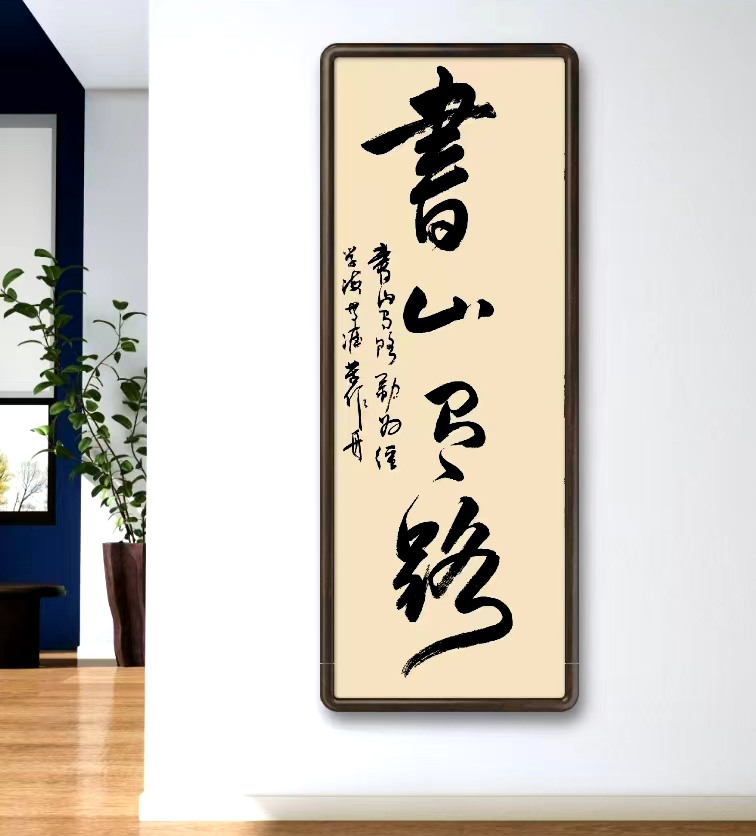 書山有路
書山有路勤為徑
学海無涯苦作舟